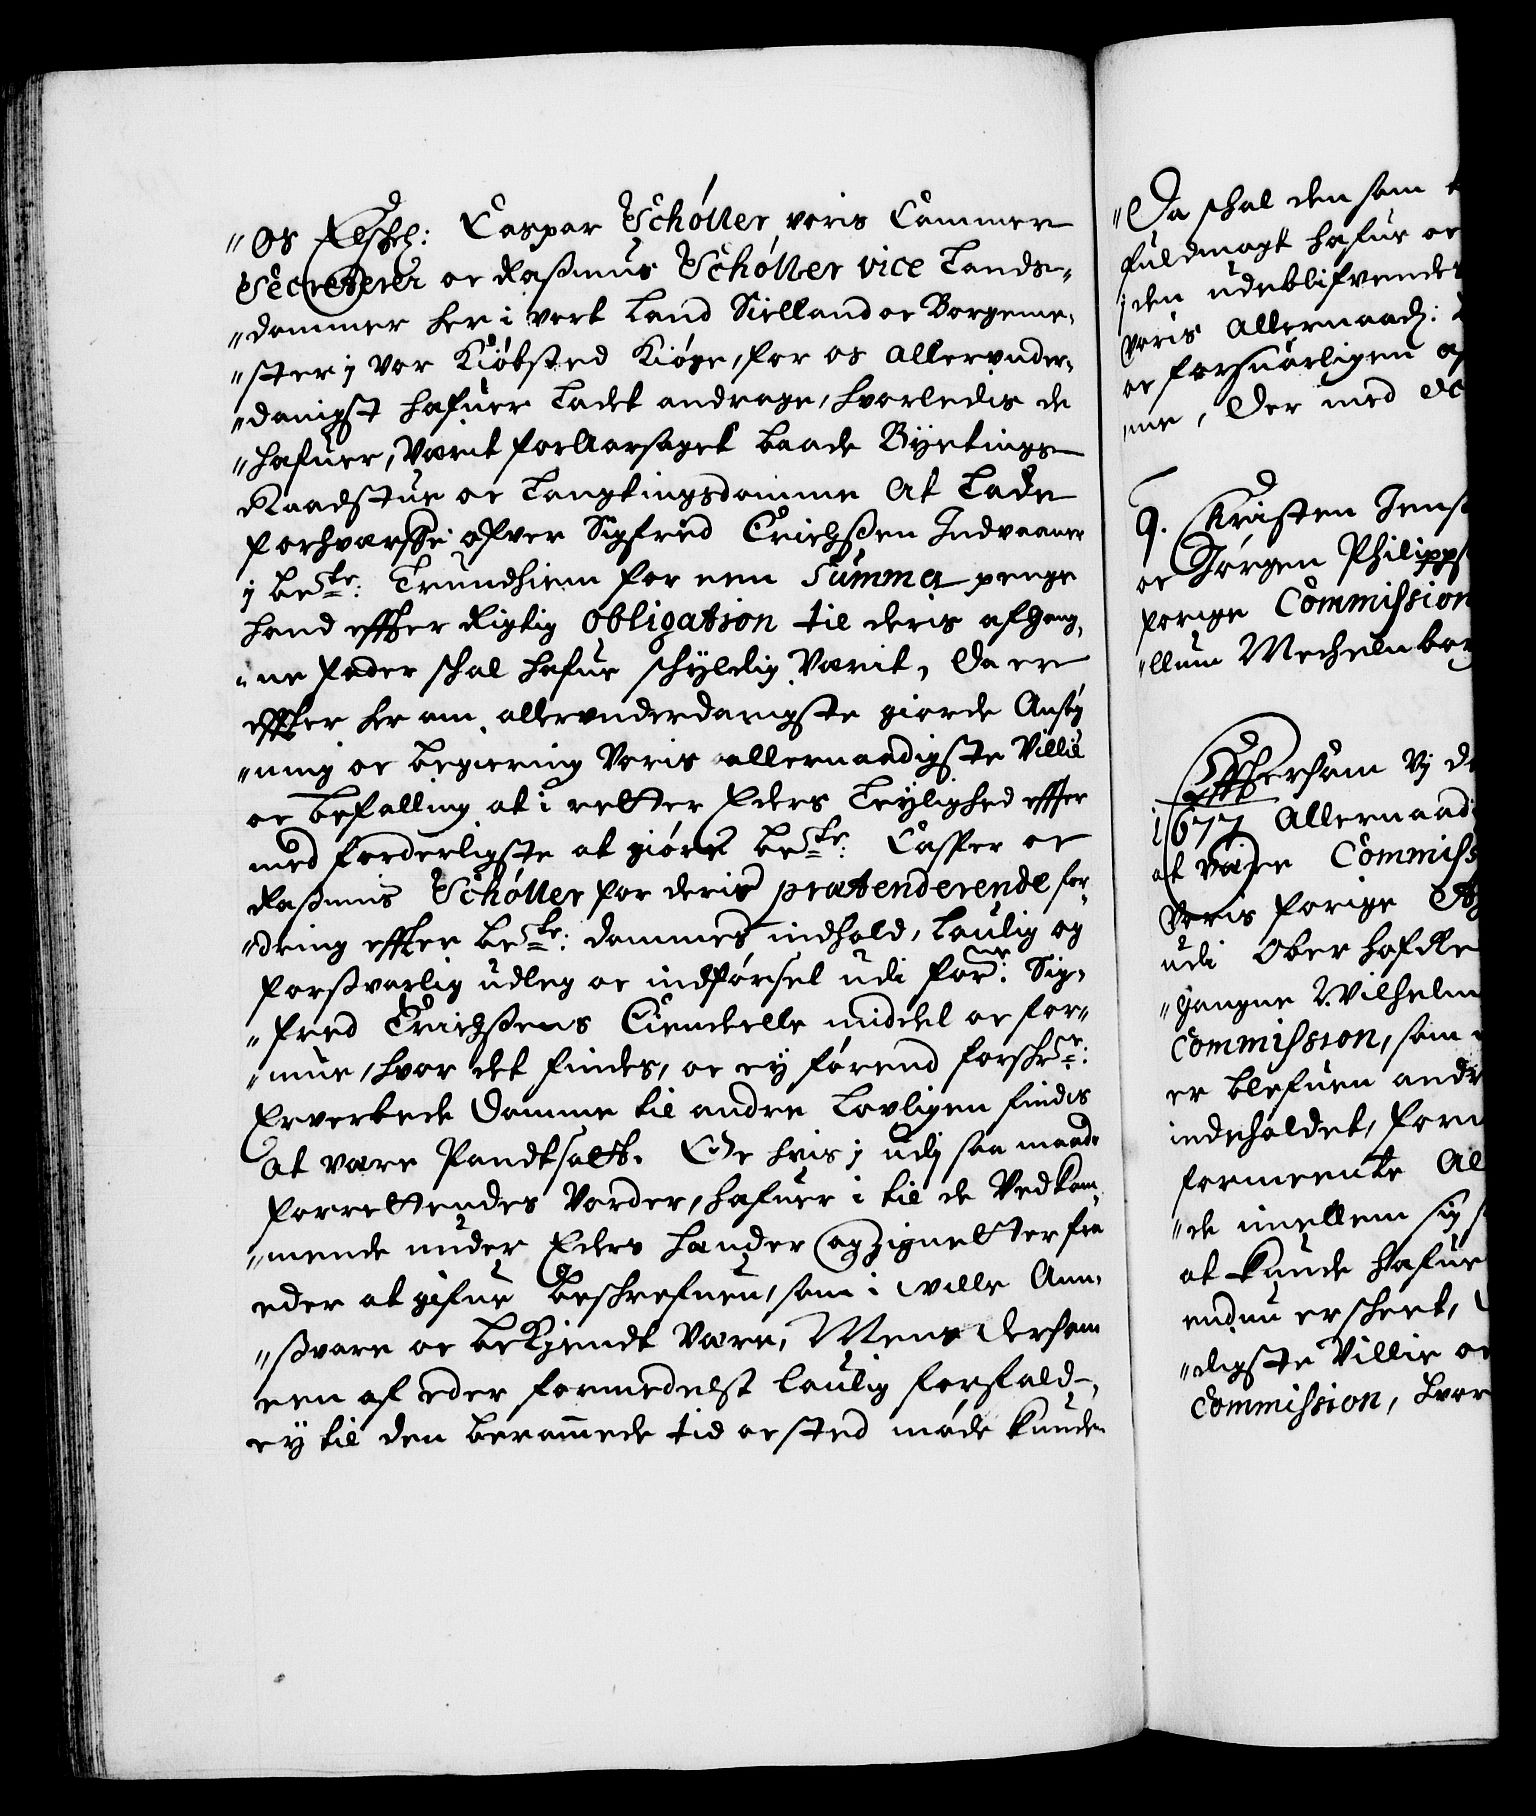 "Os Elschel: Caspar Schøller voris Cammer
Secreterer oc Rasmus Schøller vice Lands-
"dommer her i vort Land Sielland oc Borgeme-
"ster j vor Kiøbsted Kiøge, for os allerunder-
"danigst hafuer ladet andrage, hvorledis de
"hafuer, værit foraarsaget baade Byetings
Raadstue oc Laugtingsdomme at Lade
forhværffe ofver Sigfred Erichssen Indvaaner
j beete: Trundhiem for een Summa penge
hand effter Rigtig obligation til deris afgang-
"ne fader schal hafue schyldig værit, Da er
effter her om allerunderdanigste giorde Ansøg
"ning oc begiering voris allernaadigste Villie
oc befalling at i retter Eders Leylighed effter
med forderligste at giøre beete: Casper oc
Rasmus Schøller for deris prætenderende for-
"dring effter beete: dommes indhold, Laulig og
forsvarlig udleg oc indførsel udi forne: Sig-
"fred Erichssens Eiendeele middel oc for-
"mue, hvor det findes, oc ey førend forschrne:
Erverbede Domme til andre Lovligen findis
at være Pandtsatt. Oc hvis j udj saa maade
forrettendes vorder, hafuer i til de Vedkom-
"mende under Eders hænder og zignetter fra
eder at gifue beschrefuen, som i ville Ann-
"svare oc bekiendt være, Mens dersom
een af eder formedelst laulig forfald,
ey til den berammede tid oc sted møde kunde
"Da schal den som
fuldmagt hafue
j den udeblifvendes
voris allernaad:
oc forsvarligen
"me, Der med
9. Kristen Jens
oc Jørgen Philipps
forige Commission
"llum Mechelnborg
Effthersom Vj
1677 Allernaad
at være Commiss
voris forige
udi Ober hofRe
"gangne Wilhelm
Commission, som
er blefuen andr
indeholdet, form
formeente Al
"de imellem sig
at kunde hafue
endnu er scheet,
"digste Villie oc
Commission, hvor